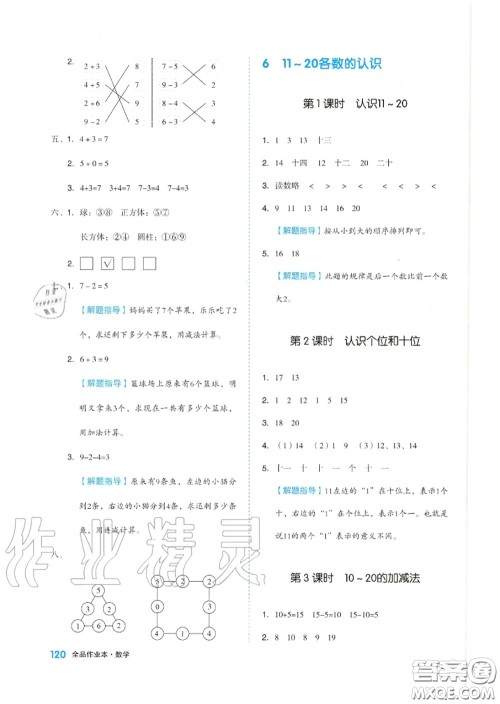 2. 2+3 8 7-5 6
4+5 7 9-3 2
2+6 9 8-5 4
9-2 5 6-3 3
五、1. 4+3=7
2. 5+0=5
3. 4+3=7 3+4=7 7-3=4 7-4=3
六、1. 球：③⑧ 正方体：⑤⑦
长方体：②④ 圆柱：①⑥⑨
2. □ ☑ □ □
1. 7-2=5
【解题指导】妈妈买了7个苹果，乐乐吃了2个，求还剩下多少个苹果，用减法计算。
2. 6+3=9
【解题指导】篮球场上原来有6个篮球，明明又拿来3个，求现在一共有多少个篮球，用加法计算。
3. 9-2-4=3
【解题指导】原来有9条鱼，左边的小猫分到2条，右边的小猫分到4条，求还剩多少条鱼，用连减计算。
八、
1
5 3
3 6 2
② ④ ③
⑥ ⑤
① ⑧
120 全品作业本·数学
6 11~20各数的认识
第1课时 认识11~20
1. 1 3 13 十三
2. 14 十四 12 十二 20 二十
3. 读数略 < > < < > <
4. 9 11 13 14 16 20
【解题指导】按从小到大的顺序排列即可。
5. 16 18
【解题指导】此题的规律是后一个数比前一个数大2。
第2课时 认识个位和十位
1. 17 13
2. 11 12 15 17
3. 18 20
4. (1)14 (2)1 9 (3)12、13、14
5. 十一 十 十一 个 十 一
【解题指导】11左边的“1”在十位上，表示1个十，右边的“1”在个位上，表示1个一。也就是说11的两个“1”表示的意义不同。
第3课时 10~20的加减法
1. 10+5=15 15-5=10
2. 8 10 9 10 10 4 10
作业精灵
答案圈
MXQE.COM